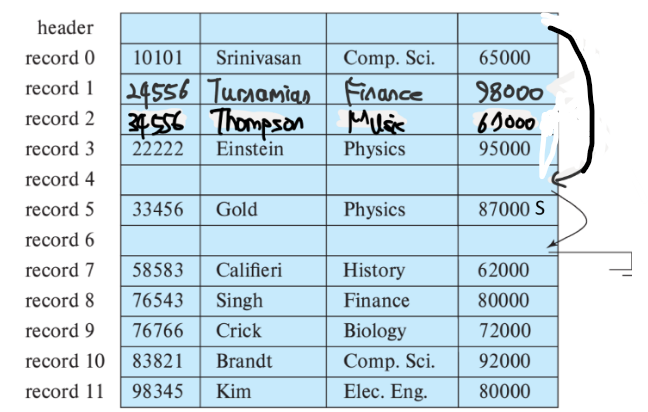 header
record 0 10101 Srinivasan Comp. Sci. 65000
record 1 24556 Turnamian Finance 98000
record 2 34556 Thompson Music 67000
record 3 22222 Einstein Physics 95000
record 4
record 5 33456 Gold Physics 87000 S
record 6
record 7 58583 Califieri History 62000
record 8 76543 Singh Finance 80000
record 9 76766 Crick Biology 72000
record 10 83821 Brandt Comp. Sci. 92000
record 11 98345 Kim Elec. Eng. 80000